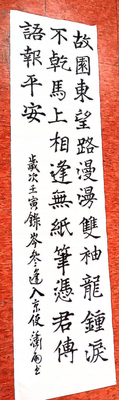 故園東望路漫漫雙袖龍鍾淚
不乾馬上相逢無紙筆憑君傳
語報平安
歲次壬寅錄岑參逢入京使
書